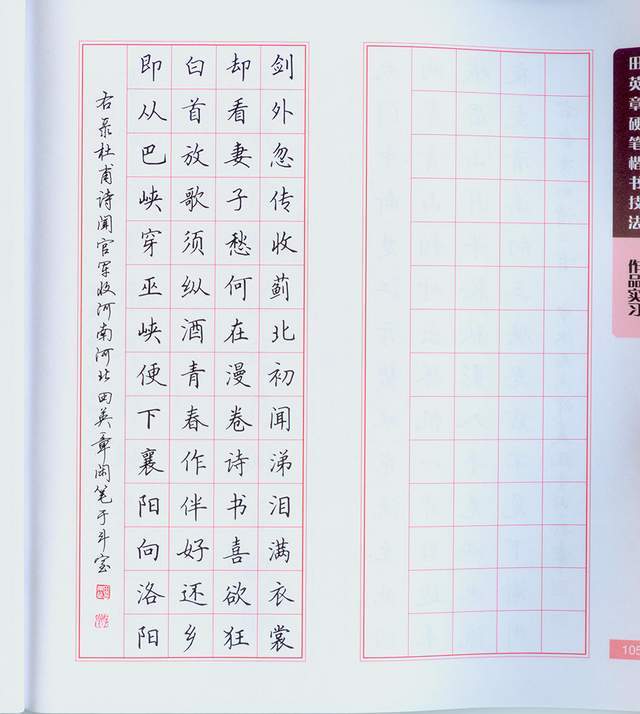 田英章硬笔楷书技法
作品实习
剑外忽传收蓟北初闻涕泪满衣裳
却看妻子愁何在漫卷诗书喜欲狂
白首放歌须纵酒青春作伴好还乡
即从巴峡穿巫峡便下襄阳向洛阳
右录杜甫诗闻官军收河南河北田英章闲笔于斗室
105